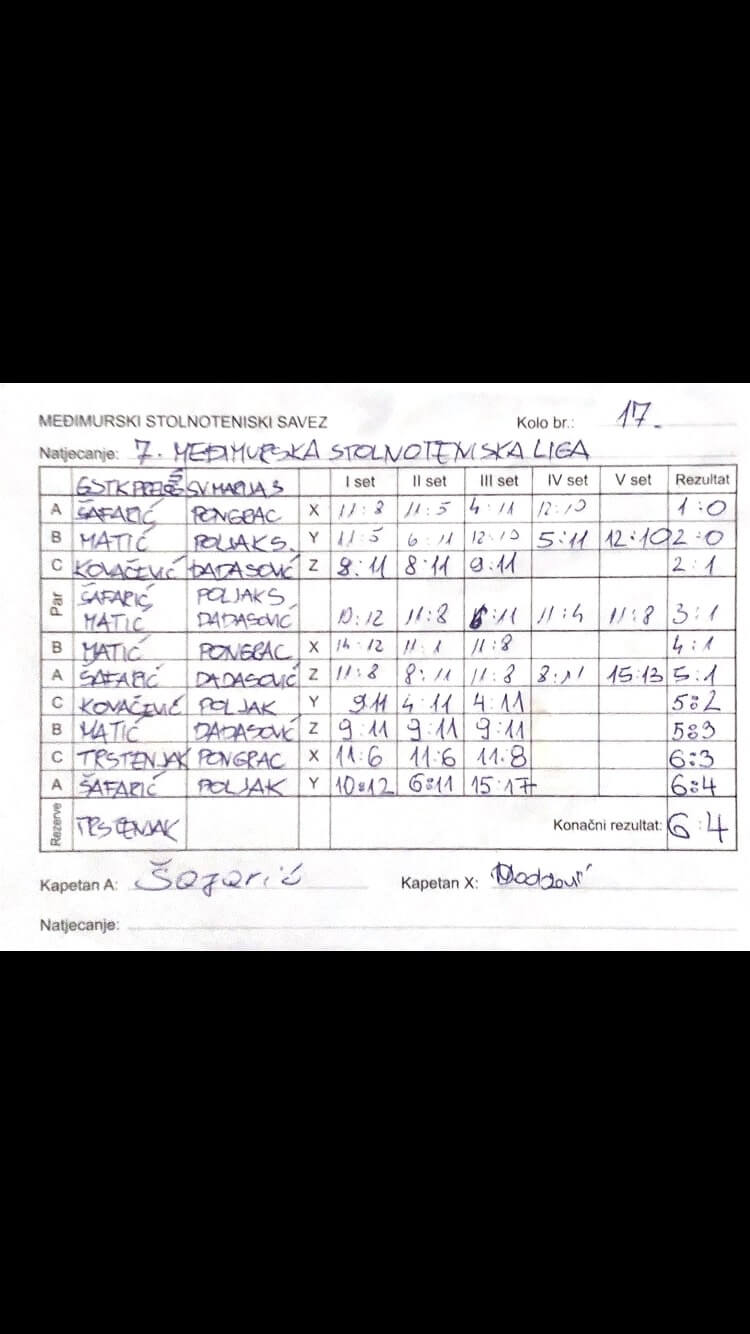 MEĐIMURSKI STOLNOTENISKI SAVEZ Kolo br.: 17.
Natjecanje: 7. MEĐIMURSKA STOLNOTENISKA LIGA
GSTK PRELOG SV MARIJA 5 I set II set III set IV set V set Rezultat
A ŠAFARIĆ PONGRAC X 11:8 11:5 4:11 12:10 1:0
B MATIĆ POLJAK S. Y 11:5 6:11 12:10 5:11 12:10 2:0
C KOVAČEVIĆ DADASOVIĆ Z 8:11 8:11 9:11 2:1
Par ŠAFARIĆ POLJAK S
MATIĆ DADASOVIĆ 10:12 11:8 6:11 11:4 11:8 3:1
B MATIĆ PONGRAC X 14:12 11:1 11:8 4:1
A ŠAFARIĆ DADASOVIĆ Z 11:8 8:11 11:8 8:11 15:13 5:1
C KOVAČEVIĆ POLJAK Y 9:11 4:11 4:11 5:2
B MATIĆ DADASOVIĆ Z 9:11 9:11 9:11 5:3
C TRSTENJAK PONGRAC X 11:6 11:6 11:8 6:3
A ŠAFARIĆ POLJAK Y 10:12 6:11 15:17 6:4
Rezerve TRSTENJAK Konačni rezultat: 6:4
Kapetan A: Šafarić Kapetan X:
Natjecanje: